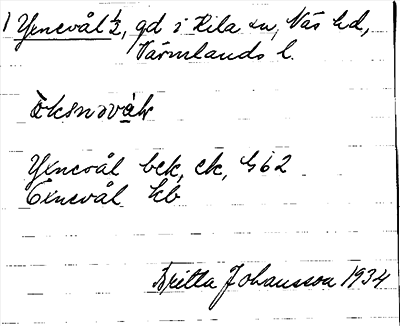 1 Yxnevål ½, gd i Kila sn, Näs hd,
Värmlands l.
Yxnevål bek, ek, G62
Öxnevål kb
Britta Johansson 1934